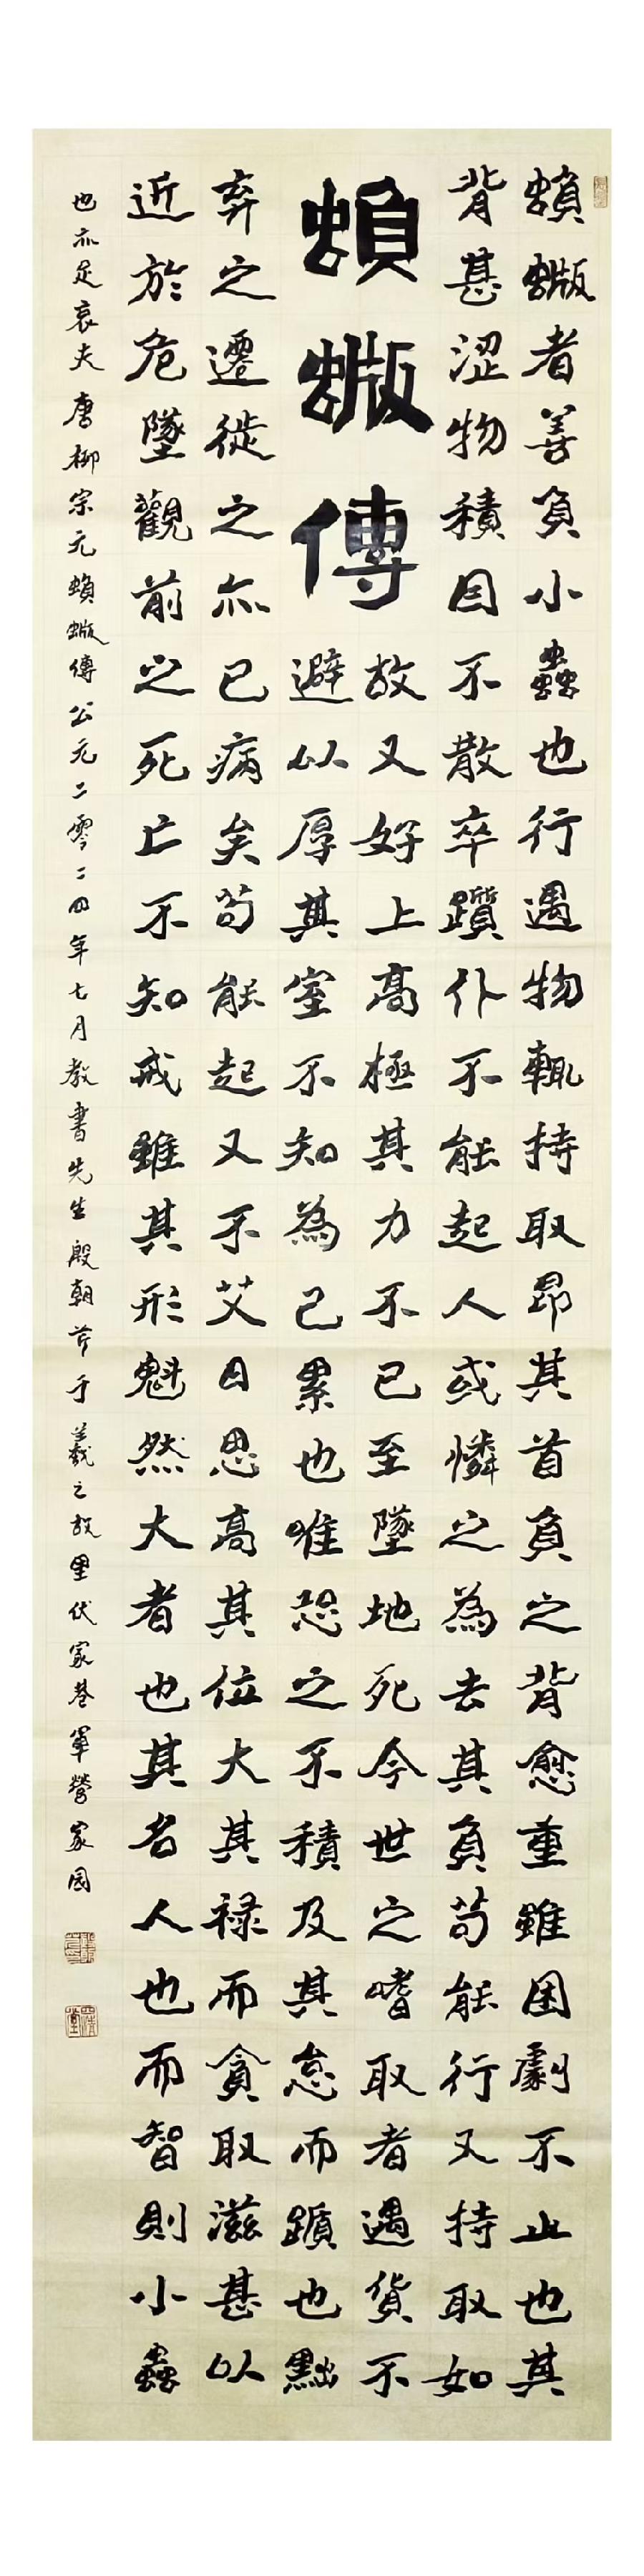 蝜蝂者善負小蟲也行遇物輒持取昂其首負之背愈重雖困劇不止也其
背甚澀物積因不散卒躓仆不能起人或憐之為去其負苟能行又持取如
蝜蝂傳
故又好上高極其力不已至墜地死今世之嗜取者遇貨不
避以厚其室不知為己累也唯恐之不積及其怠而躓也黜
弃之遷徙之亦已病矣苟能起又不艾日思高其位大其祿而貪取滋甚以
近於危墜觀前之死亡不知戒雖其形魁然大者也其名人也而智則小蟲
也亦足哀夫唐柳宗元蝜蝂傳公元二零二四年七月教書先生殷朝芹于羲之故里伏家巷軍營家園